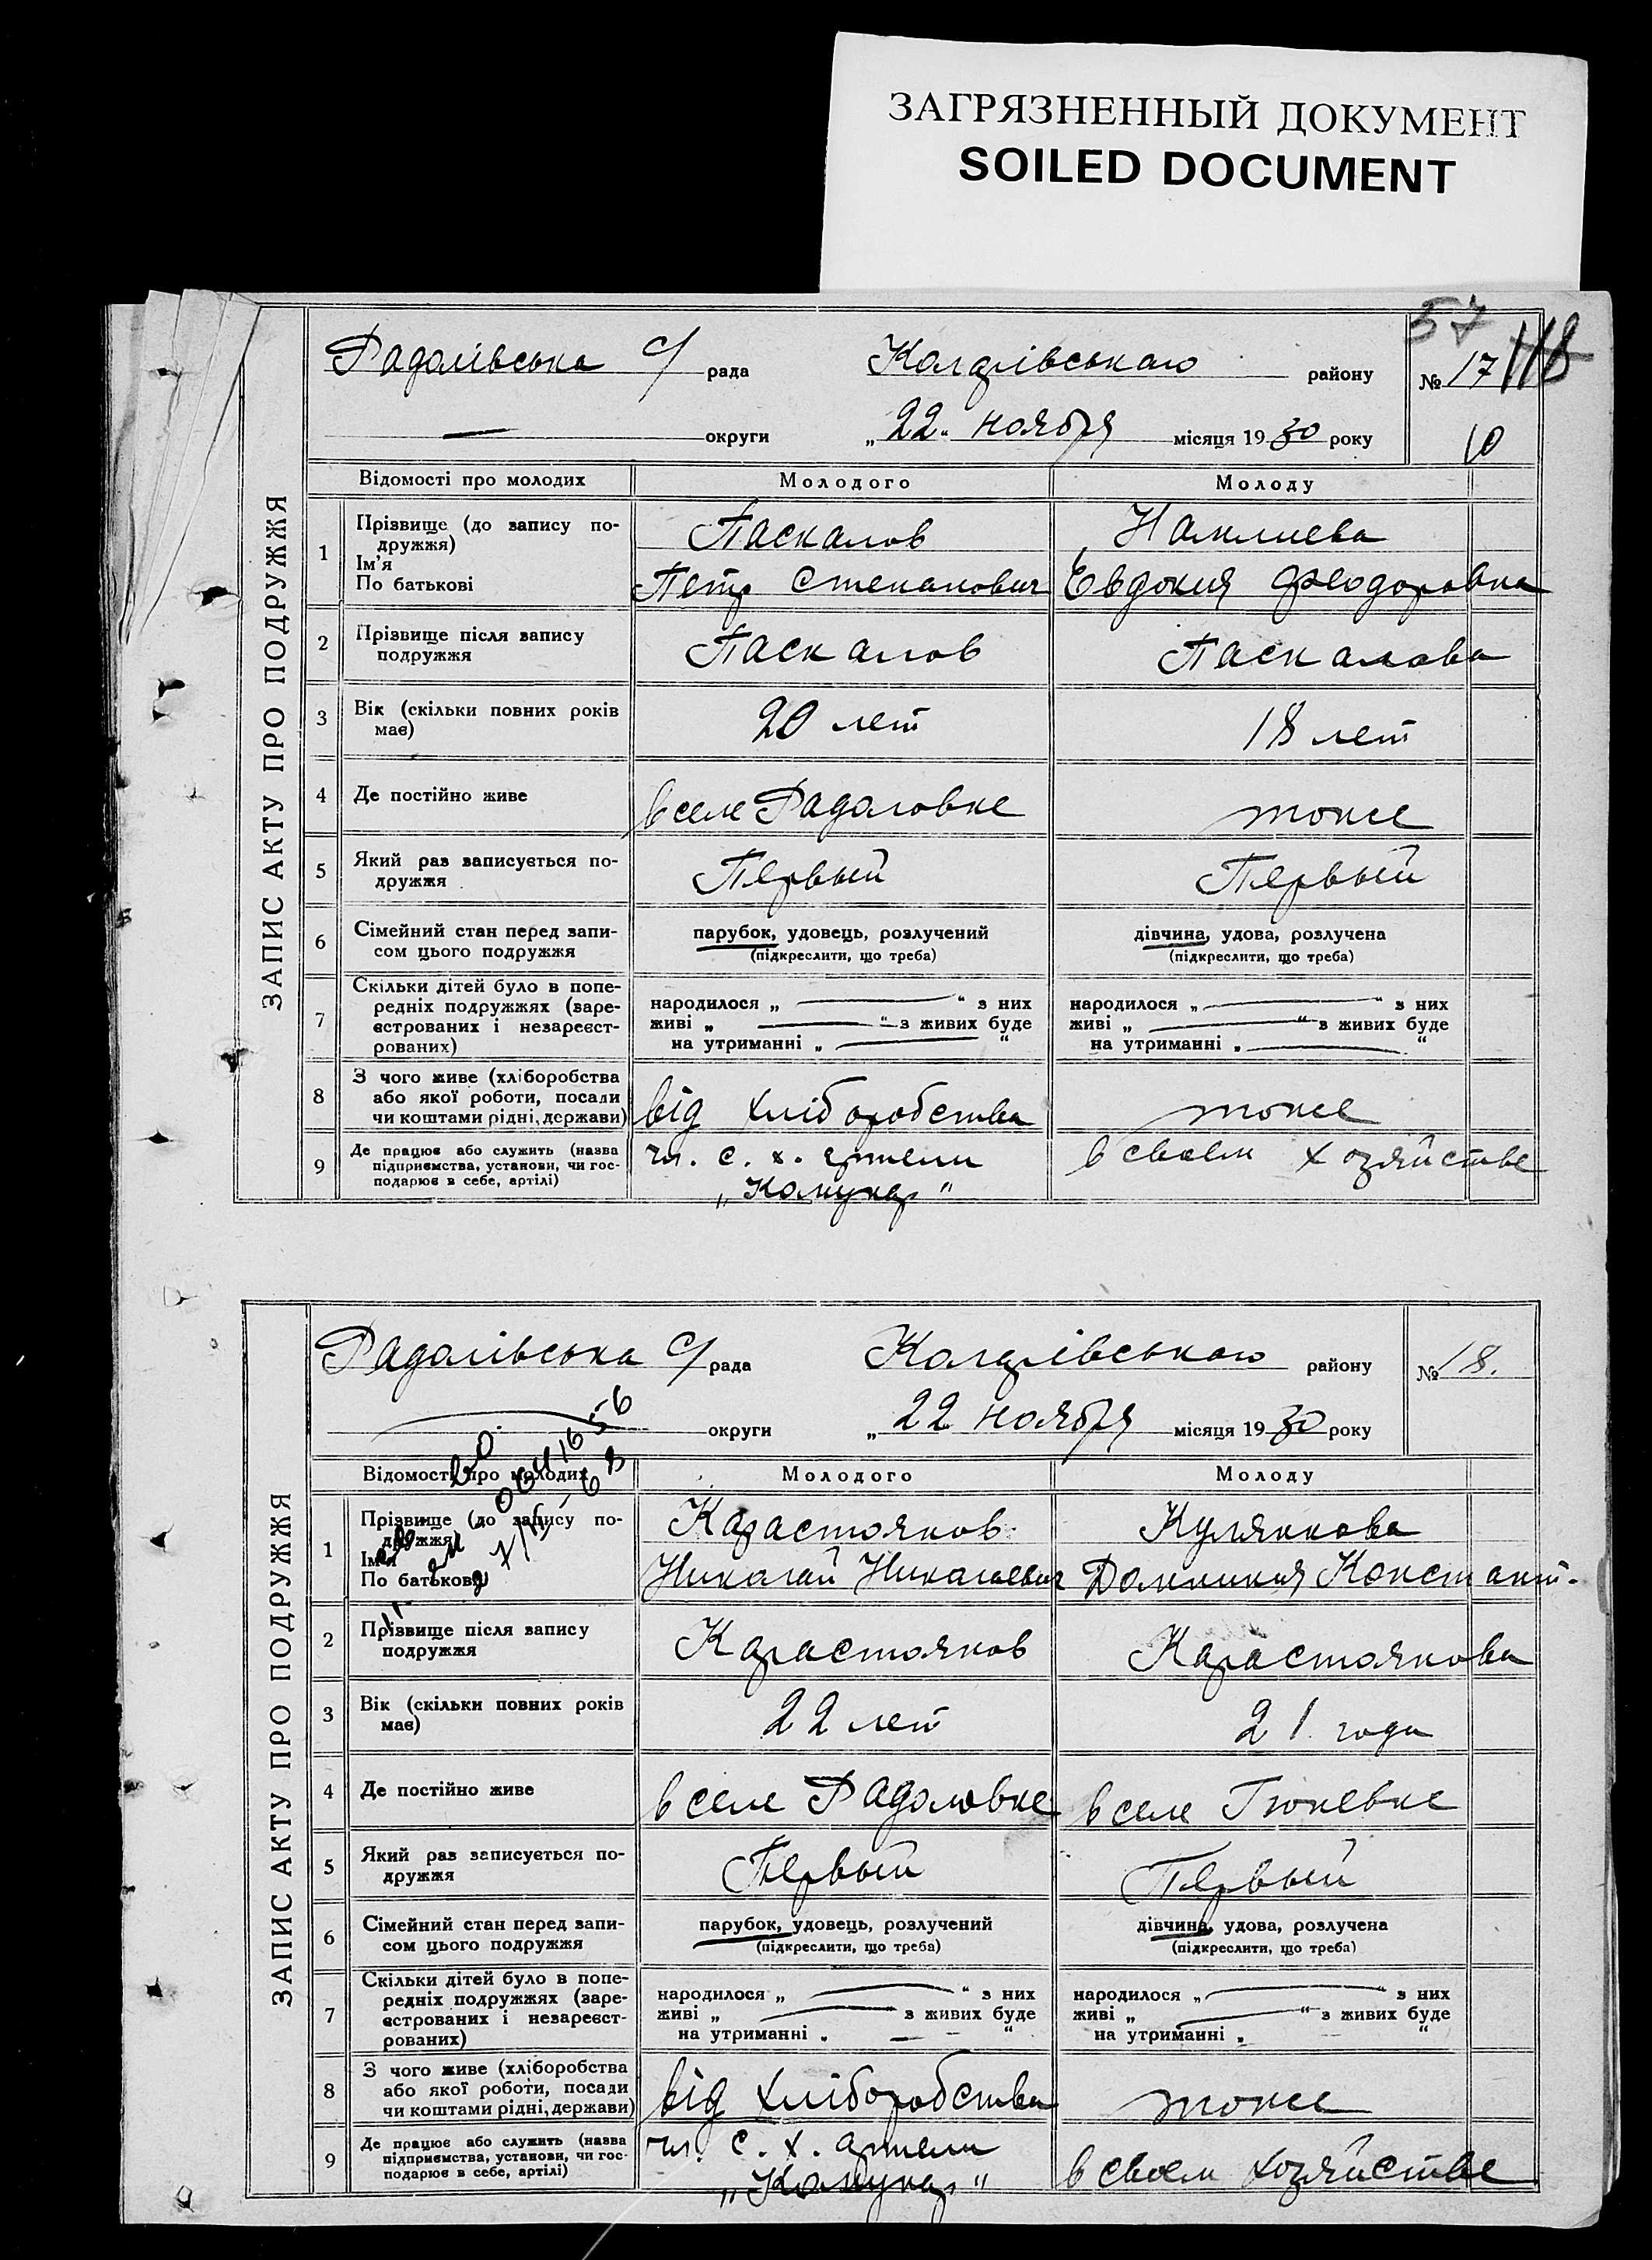 ЗАГРЯЗНЕННЫЙ ДОКУМЕНТ
SOILED DOCUMENT
57
ЗАПИС АКТУ ПРО ПОДРУЖЖЯ
Радолівська с/рада Коларівського району № 17 118
— округи „22" ноября місяця 1930 року 10
Відомості про молодих Молодого Молоду
1 Прізвище (до запису по-
дружжя)
Ім'я
По батькові
Паскалов
Петр Степанович
Евдокия Феодоровна
2 Прізвище після запису
подружжя
Паскалов Паскалова
3 Вік (скільки повних років
має)
20 лет 18 лет
4 Де постійно живе в селе Радоловке тоже
5 Який раз записується по-
дружжя
Первый Первый
6 Сімейний стан перед запи-
сом цього подружжя
парубок, удовець, розлучений
(підкреслити, що треба)
дівчина, удова, розлучена
(підкреслити, що треба)
7 Скільки дітей було в попе-
редніх подружжях (заре-
єстрованих і незареєст-
рованих)
народилося „ — " з них
живі „ — " з живих буде
на утриманні „ — "
народилося „ — " з них
живі „ — " з живих буде
на утриманні „ — "
8 З чого живе (хліборобства
або якої роботи, посади
чи коштами рідні, держави)
від хліборобства тоже
9 Де працює або служить (назва
підприємства, установи, чи гос-
подарює в себе, артілі)
чл. с. х. артели
„Комунар"
в своем хозяйстве
ЗАПИС АКТУ ПРО ПОДРУЖЖЯ
Радолівська с/рада Коларівського району № 18.
— округи „22 ноября місяця 1930 року
Відомості про молодих Молодого Молоду
1 Прізвище (до запису по-
дружжя)
Ім'я
По батькові
Карастоянов
Николай Николаевич
Кулякова
Домникия Констант.
2 Прізвище після запису
подружжя
Карастоянов Карастоянова
3 Вік (скільки повних років
має)
22 лет 21 года
4 Де постійно живе в селе Радоловке в селе Гюневке
5 Який раз записується по-
дружжя
Первый Первый
6 Сімейний стан перед запи-
сом цього подружжя
парубок, удовець, розлучений
(підкреслити, що треба)
дівчина, удова, розлучена
(підкреслити, що треба)
7 Скільки дітей було в попе-
редніх подружжях (заре-
єстрованих і незареєст-
рованих)
народилося „ — " з них
живі „ — з живих буде
на утриманні „ — — "
народилося „ — " з них
живі „ — " з живих буде
на утриманні „ "
8 З чого живе (хліборобства
або якої роботи, посади
чи коштами рідні, держави)
від хліборобства тоже
9 Де працює або служить (назва
підприємства, установи, чи гос-
подарює в себе, артілі)
чл. с. х. артели
„Комунар"
в своем хозяйстве